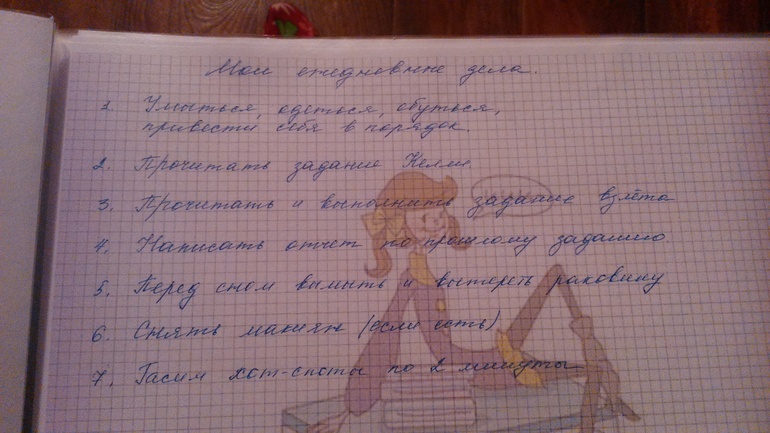 Мои ежедневные дела.
1. Умыться, одеться, обуться,
привести себя в порядок.
2. Прочитать задание Келли.
3. Прочитать и выполнить задание взлёта
4. Написать отчет по прошлому заданию.
5. Перед сном вымыть и вытереть раковину
6. Снять макияж (если есть)
7. Гасим хот-споты по 2 минуты